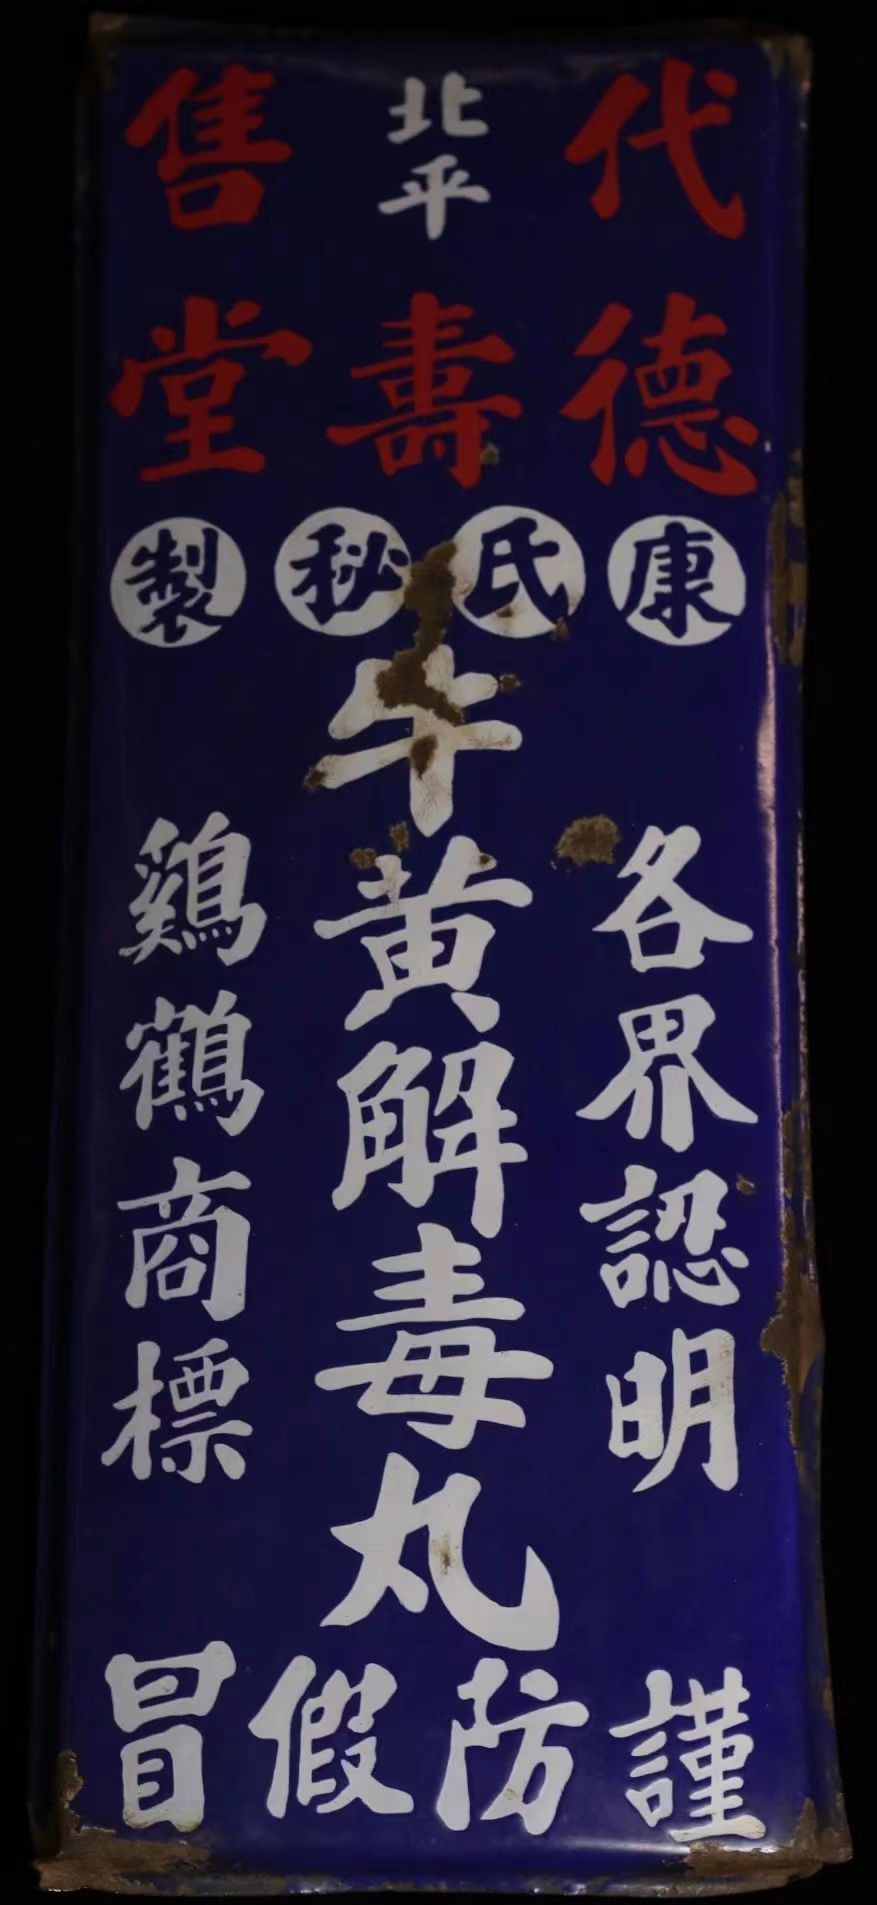 代售
北平
德壽堂
康氏秘製
各界認明
牛黄解毒丸
鷄鶴商標
謹防假冒